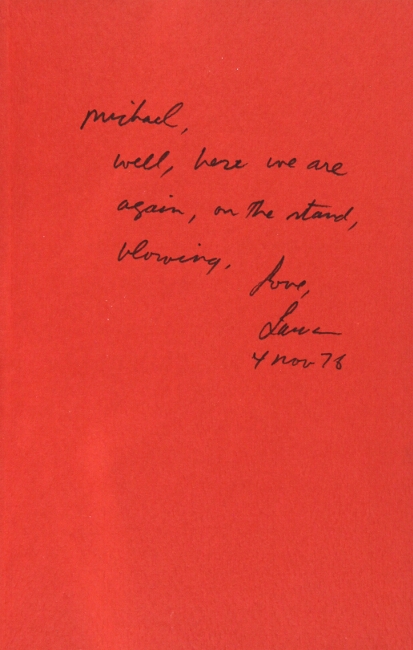 michael,
well, here we are
again, on the stand,
blowing.
Love,
4 Nov 76